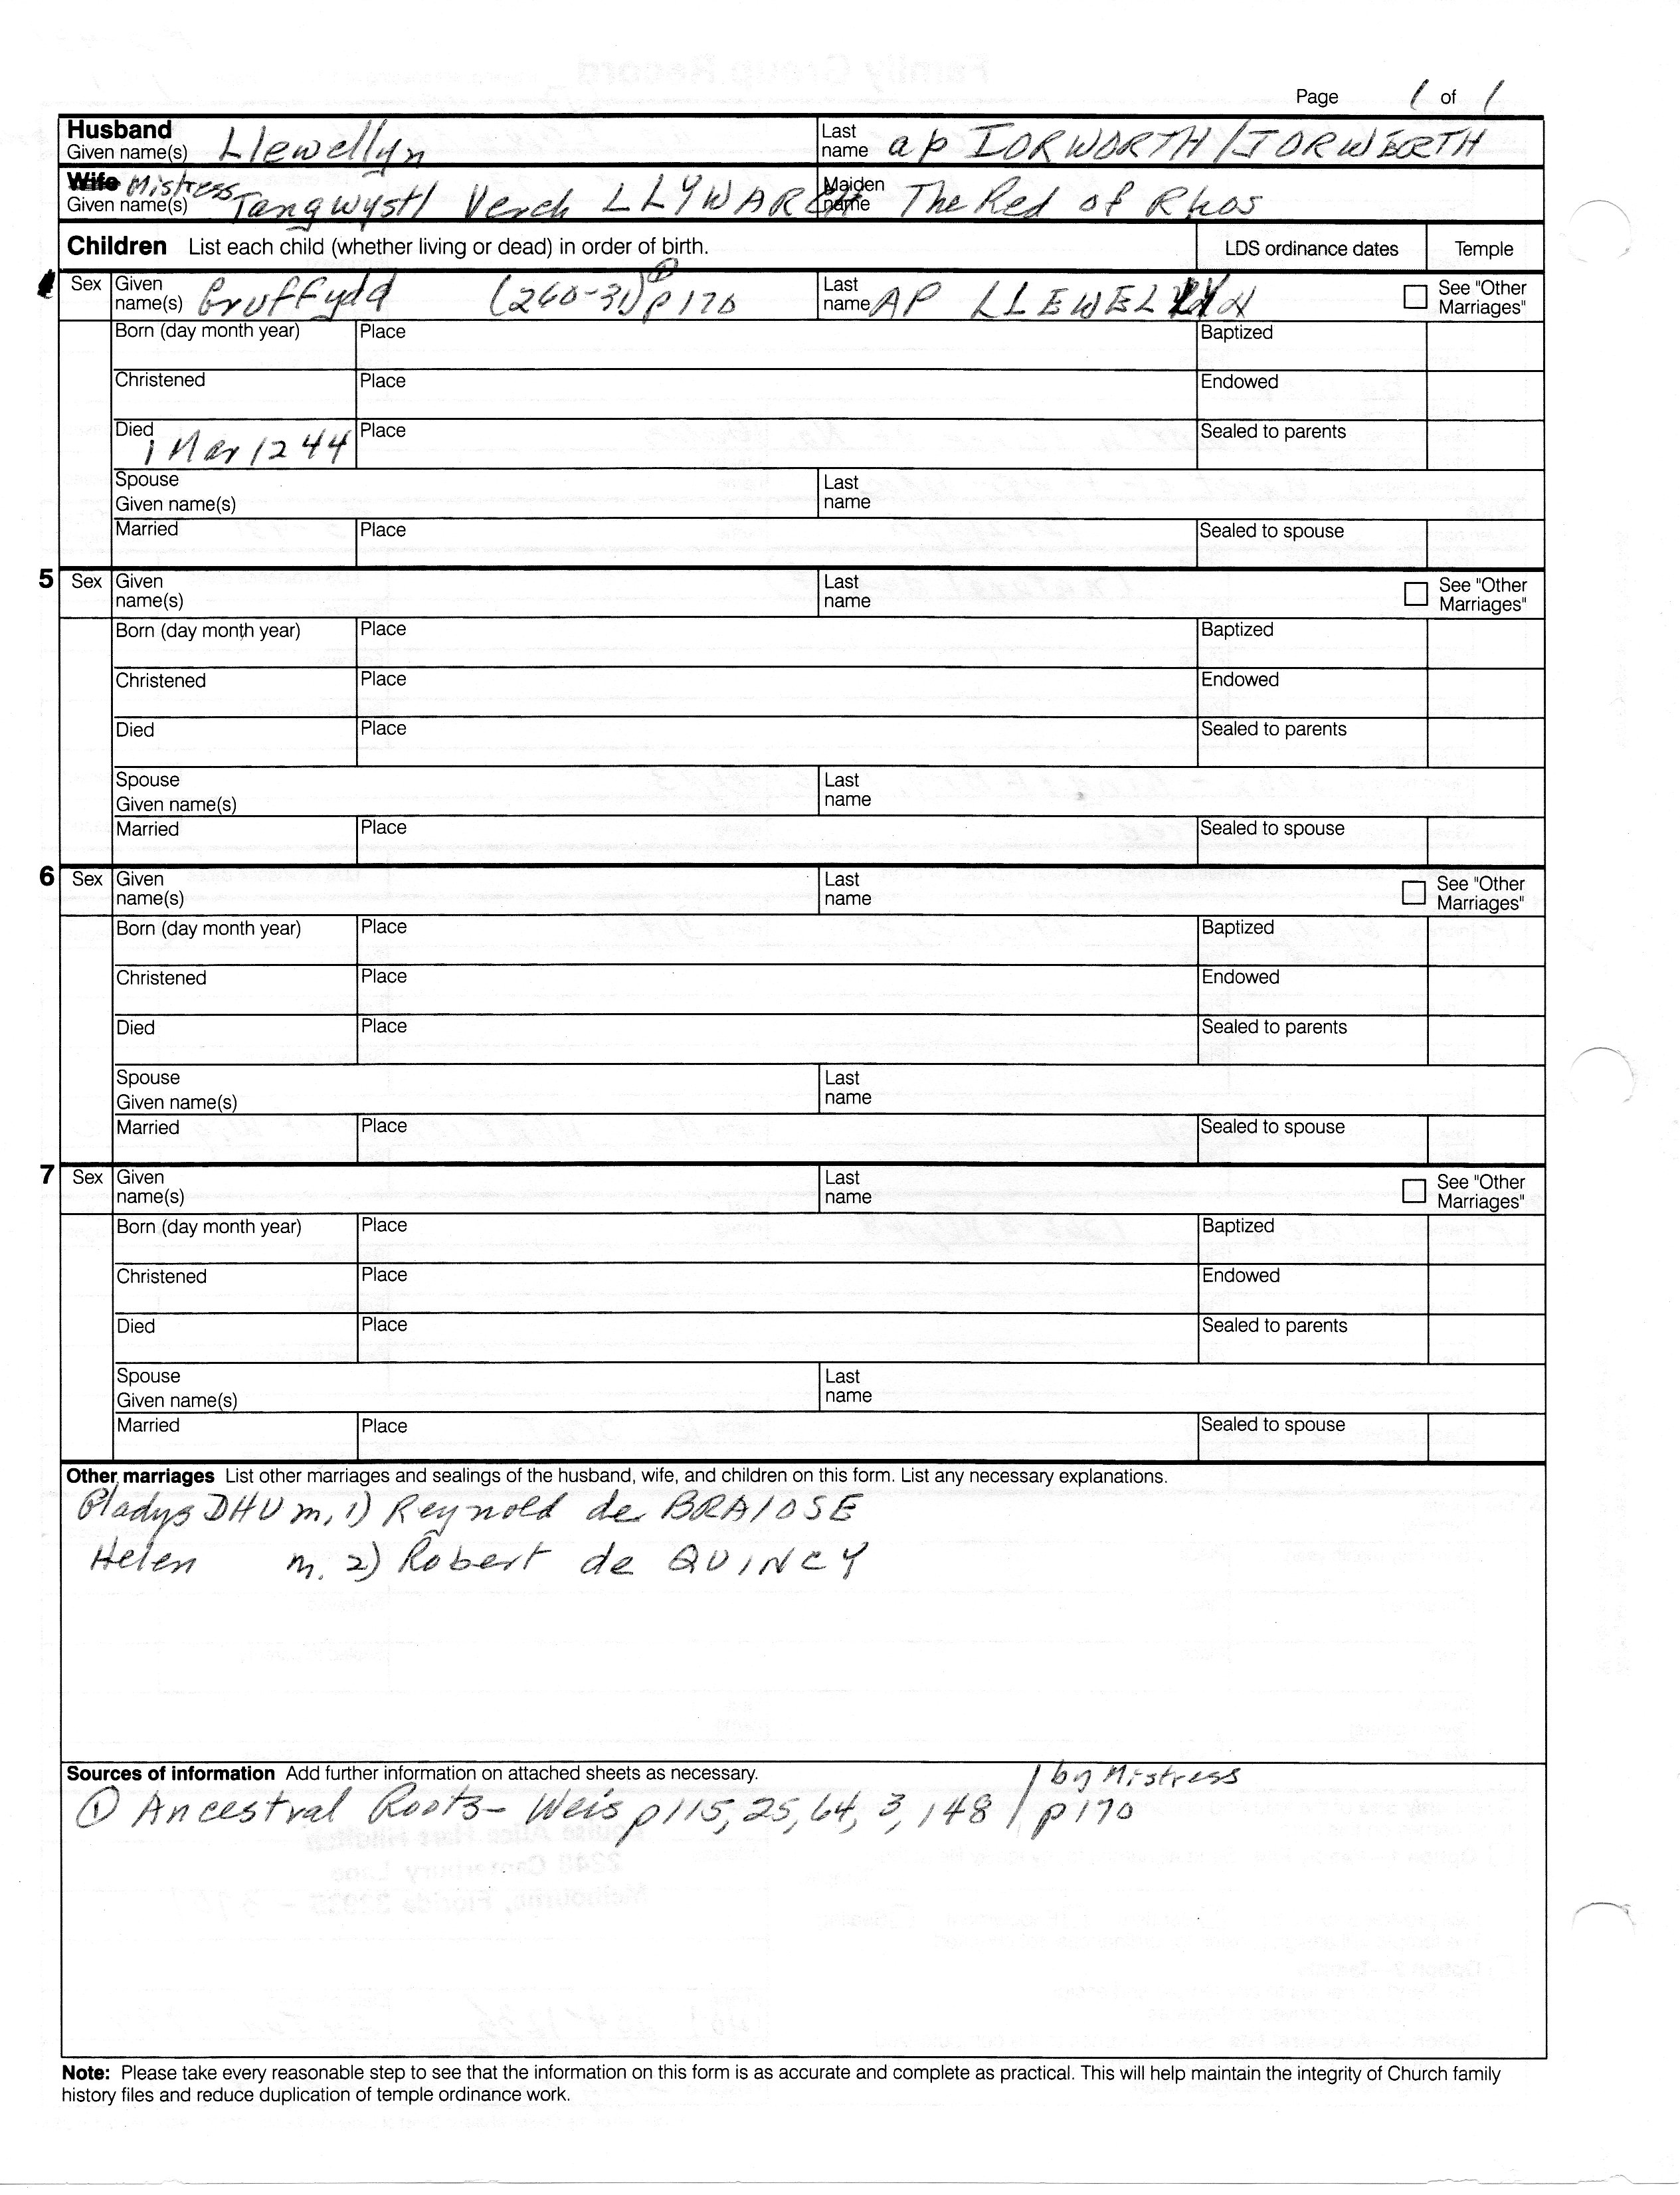 Page 1 of 1
Husband
Given name(s) Llewellyn Last name ap IORWORTH/JORWERTH
Wife Mistress
Given name(s) Tangwystl Verch LLYWARCH Maiden name The Red of Rhos
Children List each child (whether living or dead) in order of birth. LDS ordinance dates Temple
Sex Given name(s) Gruffydd (260-31) ① p170 Last name AP LLEWELLYN See "Other Marriages"
Born (day month year) Place Baptized
Christened Place Endowed
Died 1 Mar 1244 Place Sealed to parents
Spouse Given name(s) Last name
Married Place Sealed to spouse
5 Sex Given name(s) Last name See "Other Marriages"
Born (day month year) Place Baptized
Christened Place Endowed
Died Place Sealed to parents
Spouse Given name(s) Last name
Married Place Sealed to spouse
6 Sex Given name(s) Last name See "Other Marriages"
Born (day month year) Place Baptized
Christened Place Endowed
Died Place Sealed to parents
Spouse Given name(s) Last name
Married Place Sealed to spouse
7 Sex Given name(s) Last name See "Other Marriages"
Born (day month year) Place Baptized
Christened Place Endowed
Died Place Sealed to parents
Spouse Given name(s) Last name
Married Place Sealed to spouse
Other marriages List other marriages and sealings of the husband, wife, and children on this form. List any necessary explanations.
Gladys DHU m. 1) Reynold de BRAIOSE
Helen m. 2) Robert de QUINCY
Sources of information Add further information on attached sheets as necessary.
① Ancestral Roots- Weis p115, 25, 64, 3, 148 / by Mistress p170
Note: Please take every reasonable step to see that the information on this form is as accurate and complete as practical. This will help maintain the integrity of Church family
history files and reduce duplication of temple ordinance work.